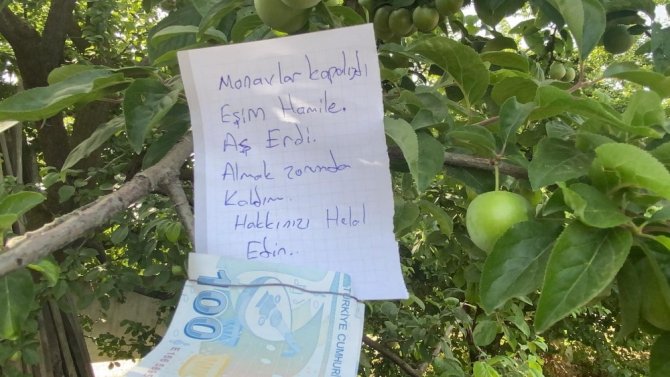 Manavlar kapalıydı
Eşim Hamile.
Aş Erdi.
Almak zorunda
Kaldım.
Hakkınızı Helal
Edin..
100
TÜRKİYE CUMHUR